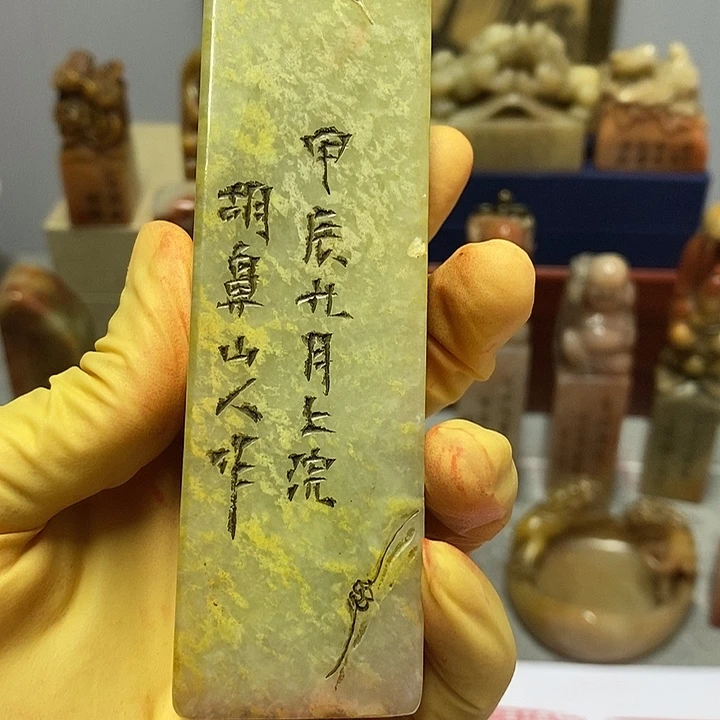 甲辰九月上院
胡鼻山人作